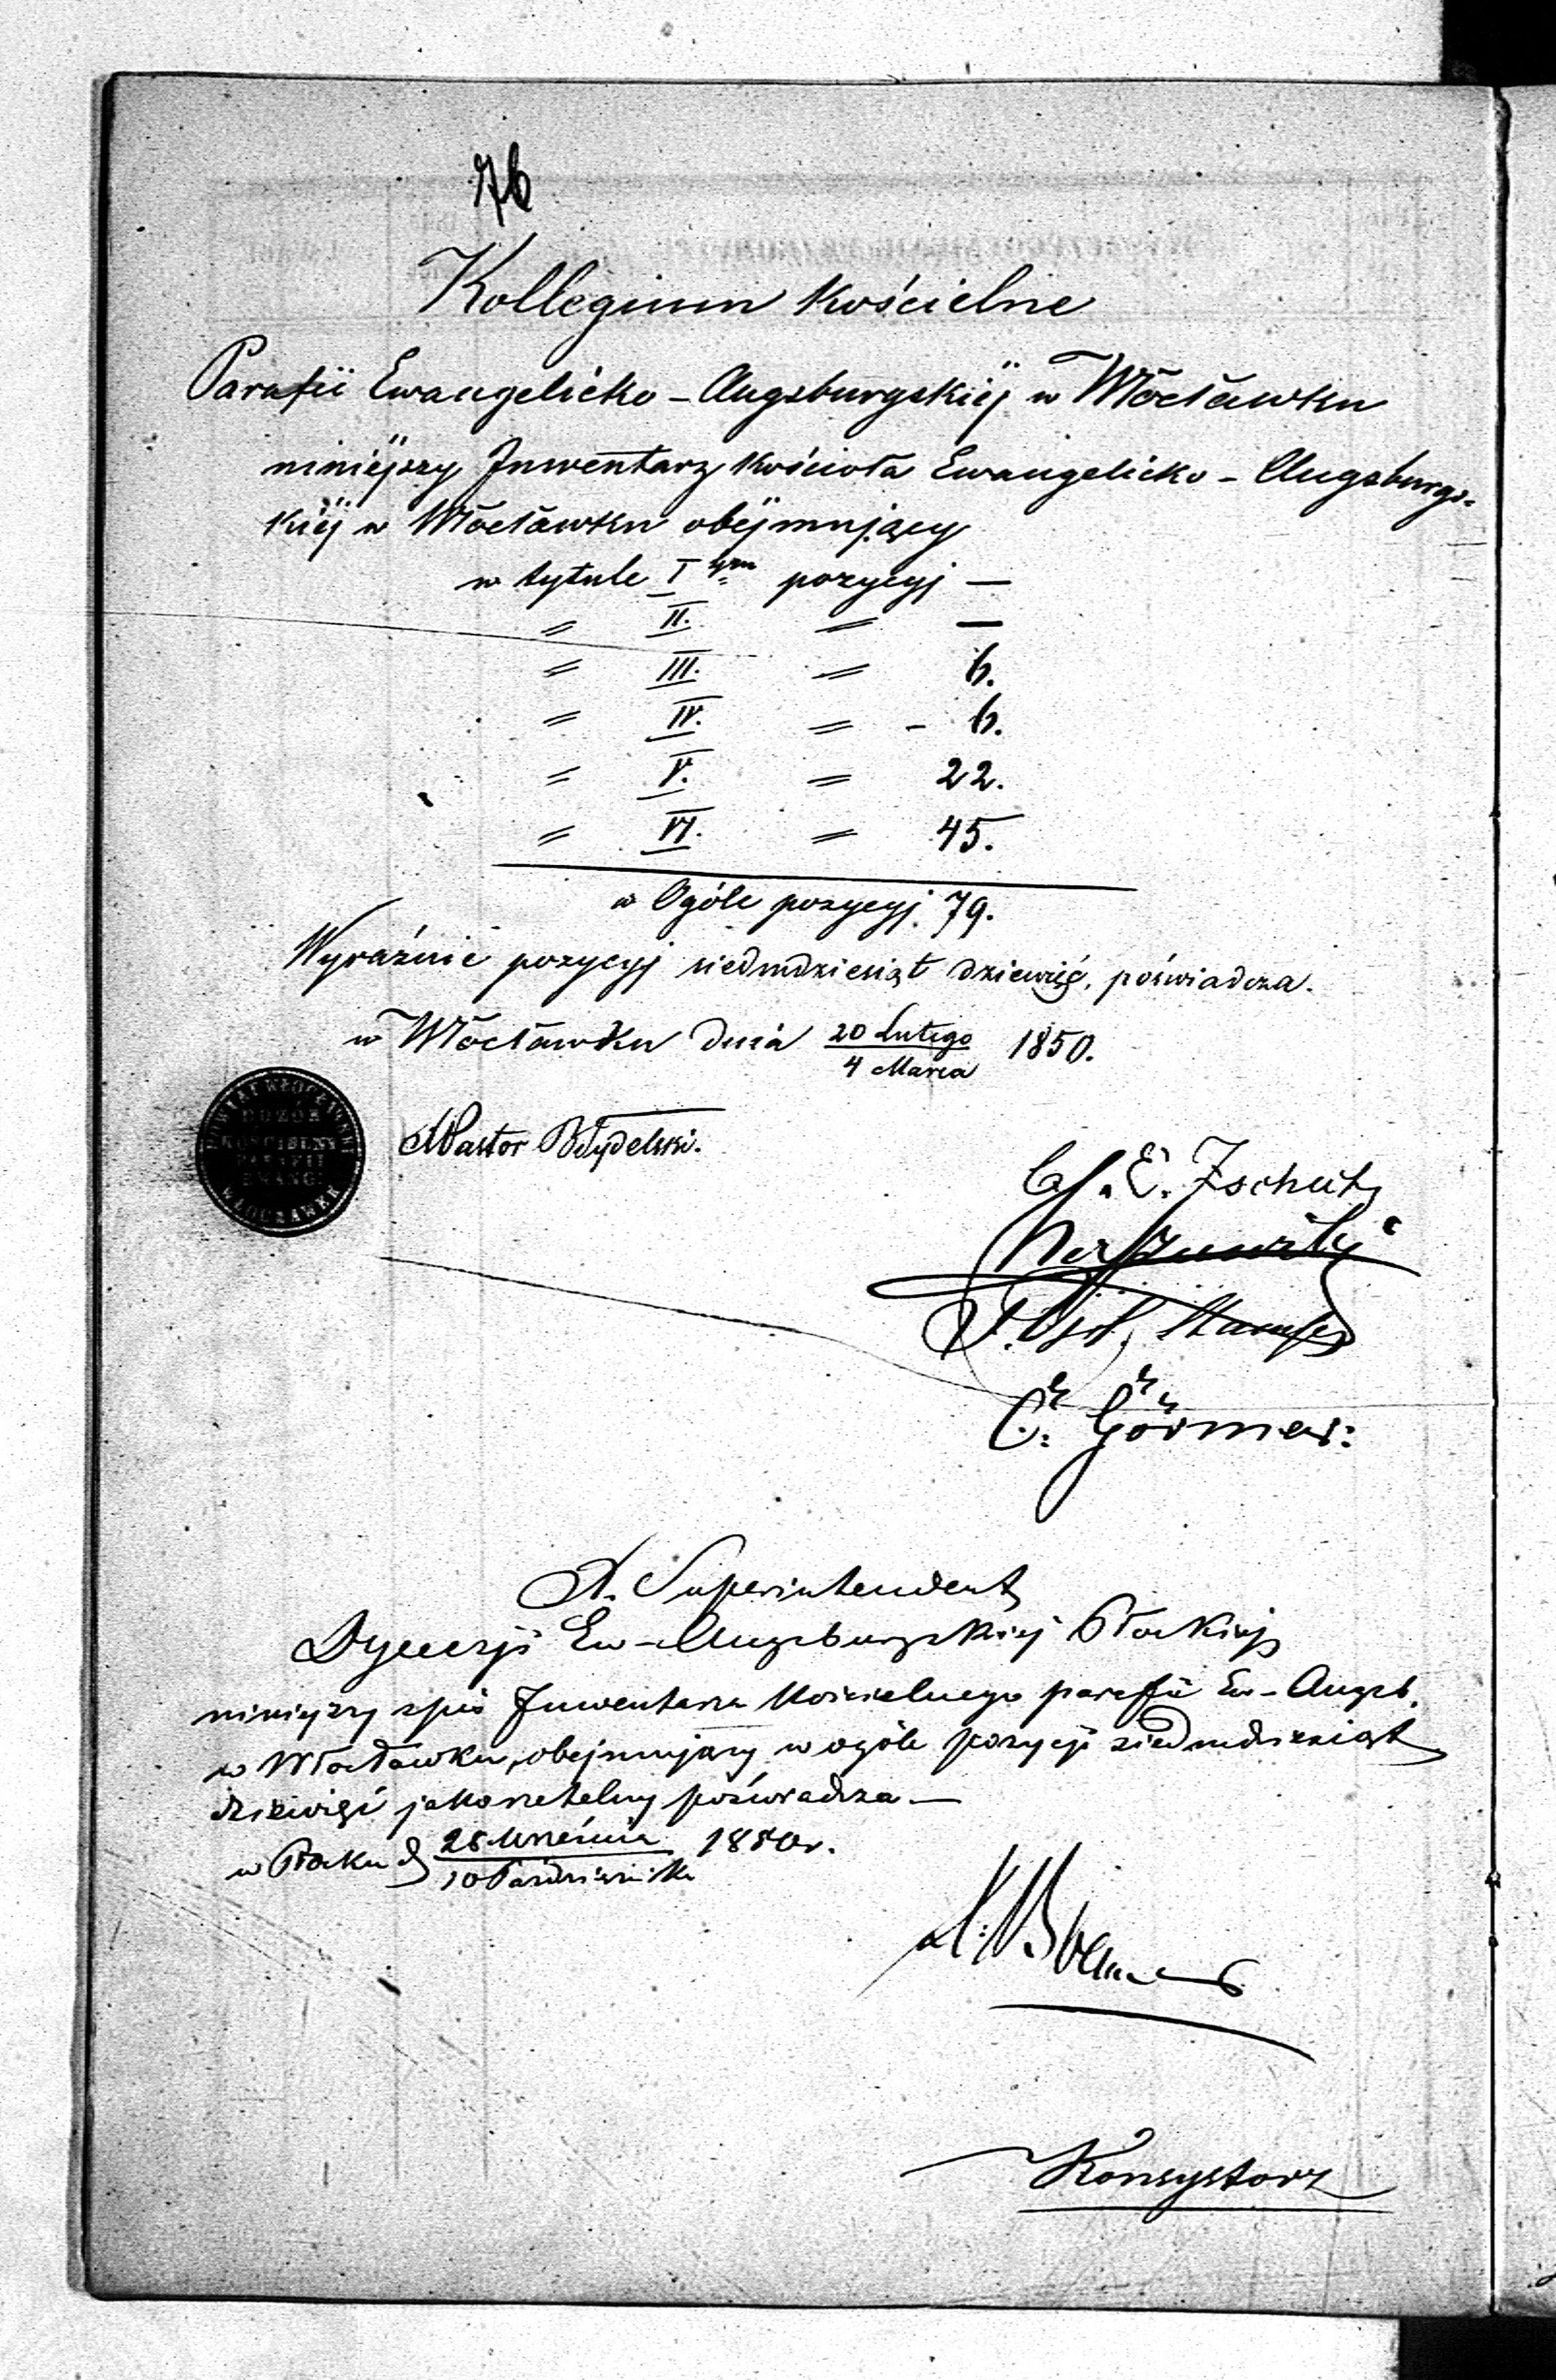 76
Kollegium Kościelne
Parafii Ewangelicko-Augsburgskiéj w Włocławku
niniéjszy Inwentarz Kościoła Ewangelicko-Augsburgs=
kiéj w Włocławku obéjmujący
w tytule I ym pozycyj —
〃 II. 〃 —
〃 III. 〃 6.
〃 IV. 〃 - 6.
〃 V. 〃 22.
〃 VI. 〃 45.
w Ogóle pozycyj 79.
Wyraźnie pozycyj siedmdziesiąt dziewięć, poświadcza.
w Włocławku dnia 20 Lutego / 4 Marca 1850.
POWIAT WŁOCŁAWSKI
DOZÓR
KOŚCIELNY
PARAFII
EWANG:
WŁOCŁAWEK
Pastor
E. Zschutz
C. Görner:
Superintendent
Dyecezji Ew-Augsburgskiej Płockiej
niniejszy spis Inwentarza Kościelnego parafii Ew-Augsb.
w Włocławku, obejmujący w ogóle pozycji siedmdziesiąt
dziewięć jako rzetelny poświadcza —
w Płocku d 28 Września / 10 Października 1850 r.
Konsystorz